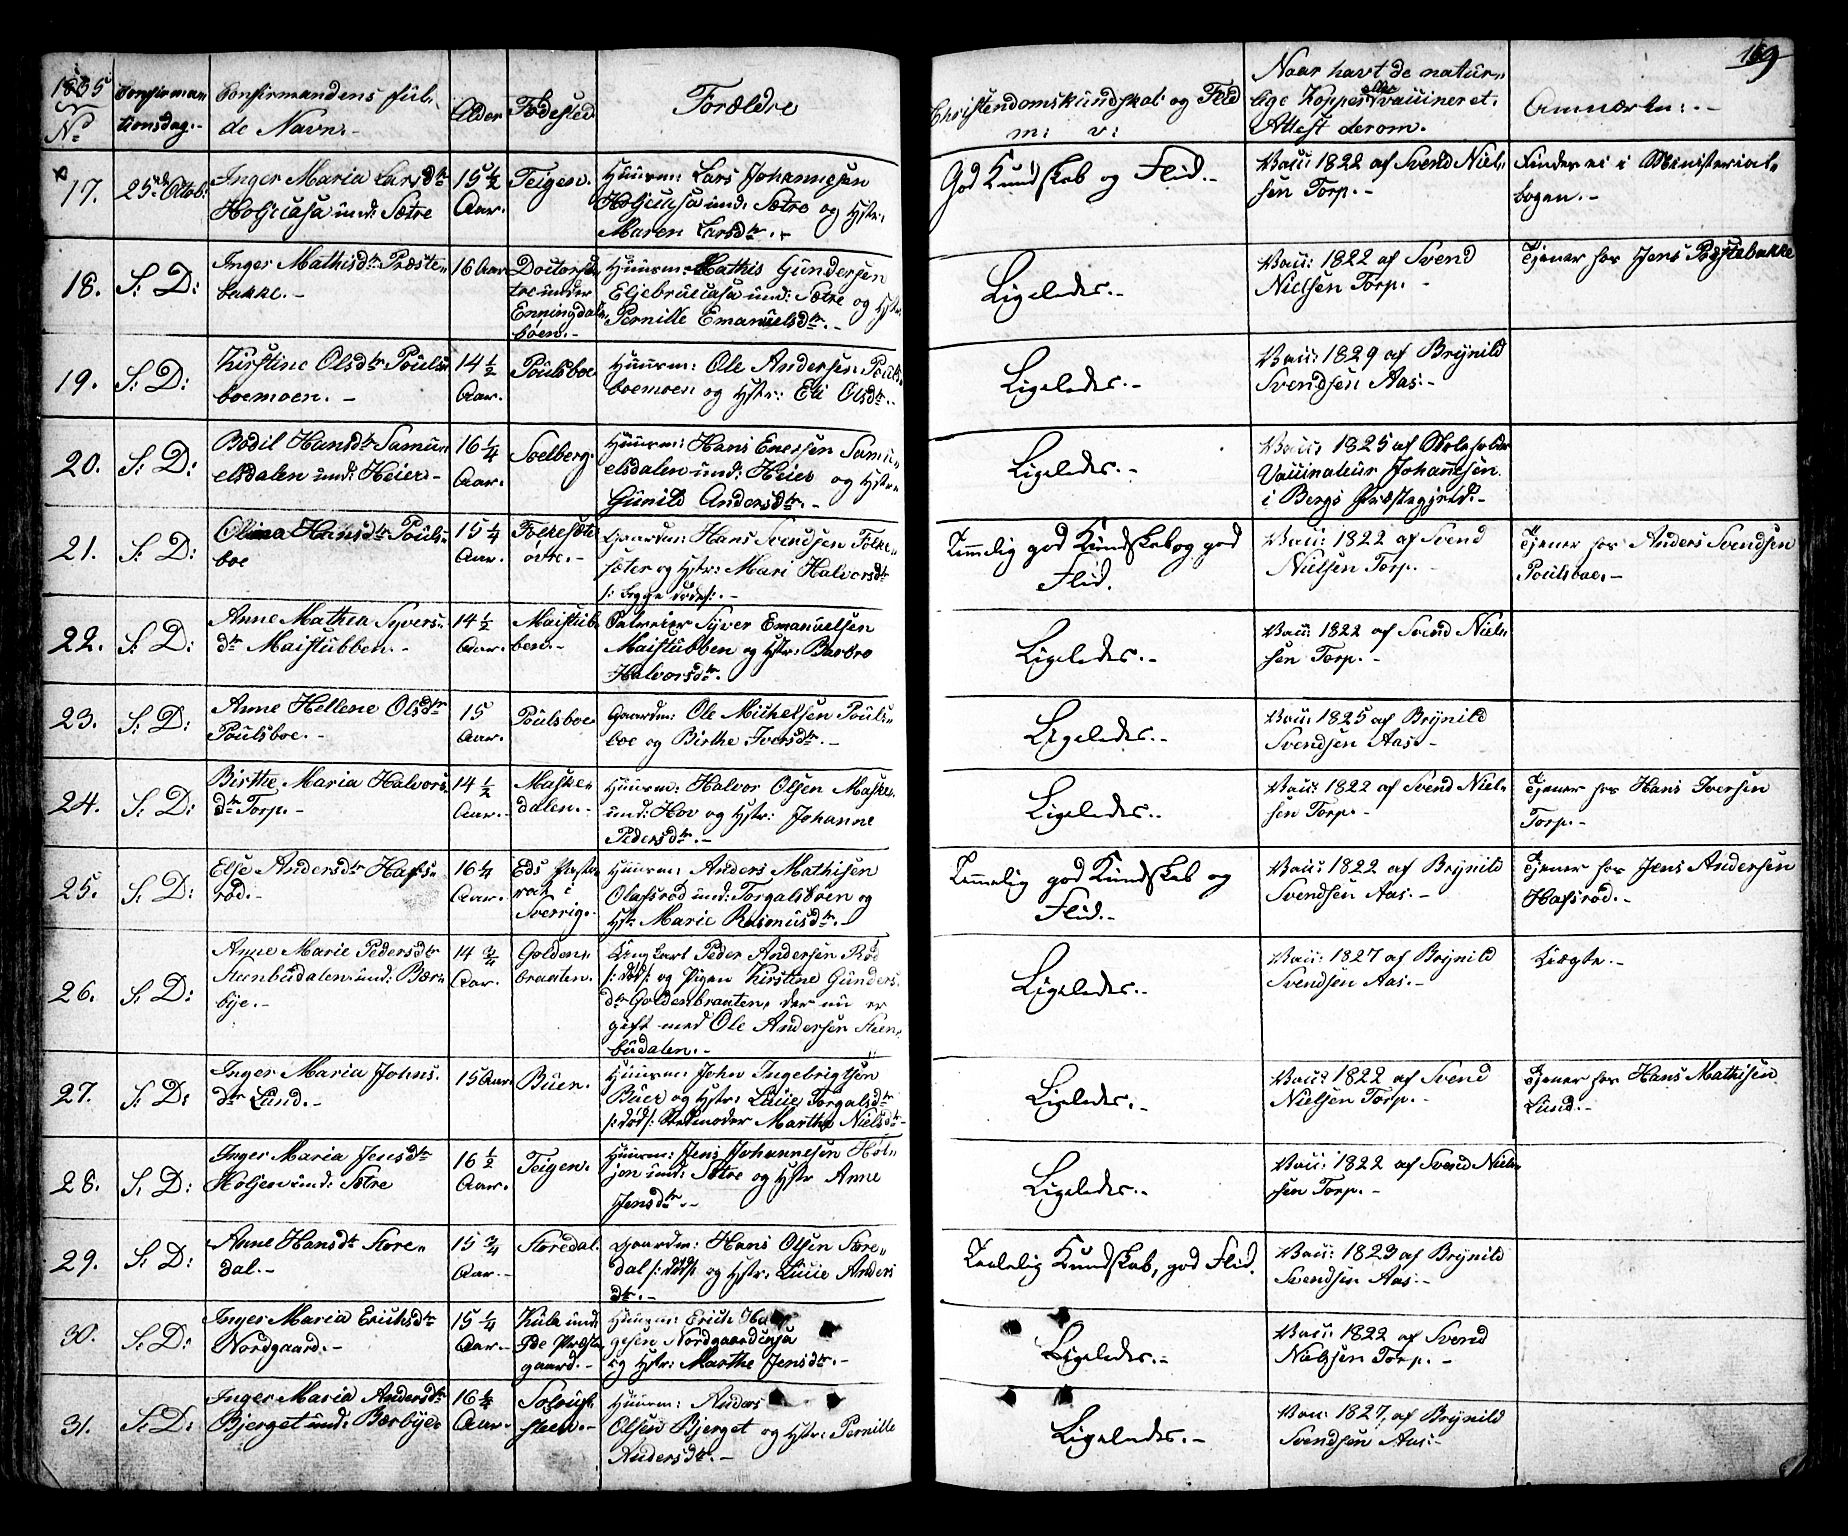 1835
No
Confirma-
tionsdag.-
Confirmandens ful-
de Navn.-
Alder
Fødested
Forældre
Christendomskundskab og Flid
m: v:
Naar havt de natur-
lige Kopper eller vaccineret.
Attest derom.
Anmærkn:.-
169
17.
25de Octob:
Inger Maria Larsdtr
Holjecasa und: Sætre
15 1/2
Aar.
Teigen.
Huusm: Lars Johannesen
Holjecasa und: Sætre og Hstr:
Maren Larsdtr.-
God Kundskab og Flid.-
Vacc: 1822 af Svend Niel-
sen Torp.-
Findes ei i Ministerial-
bogen.-
18.
S: D:
Inger Mathisdtr Præste-
bakke.-
16 Aar
tre under
Enningdal-
boen.-
Huusm: Mathis Gundersen
und: Sætre og Hstr:
Pernille Emanuelsdtr.-
Ligeledes.-
Vacc: 1822 af Svend
Nielsen Torp.-
Tjener hos Jens Præstebakke
19.
S: D:
Kirstine Olsdtr Pouls-
boemoen.-
14 1/2
Aar.
Poulsboe
Huusm: Ole Andersen Pouls-
boemoen og Hstr: Eli Olsdtr.-
Ligeledes.-
Vacc: 1829 af Brynild
Svendsen Aas.-
20.
S: D:
Bodil Hansdtr Samu-
elsdalen und: Heier.-
16 1/4
Aar.
Soelberg.
Huusm: Hans Enersen Samu-
elsdalen und: Heier og Hstr:
Gunild Andersdtr.-
Ligeledes.-
Vacc: 1825 af
Vaccinateur Johannesen
i Bergs Præstegjeld.-
21.
S: D:
Olina Hansdtr Pouls-
boe
15 1/4
Aar.
Folkesæter
øvre.-
Gaardm: Hans Svendsen Folke-
sæter og Hstr: Mari Halvorsdtr
/: begge døde :/.-
Temmelig god Kundskab og god
Flid.
Vacc: 1822 af Svend
Nielsen Torp.-
Tjener hos Anders Svendsen
Poulsboe.-
22.
S: D:
Anne Mathea Syvers-
dtr Maistubben.-
14 1/2
Aar.
Maistub-
ben.-
Syver Emanuelsen
Maistubben og Hstr: Barbro
Halvorsdtr.
Ligeledes.-
Vacc: 1822 af Svend Niel-
sen Torp.-
23.
S: D:
Anne Hellene Olsdtr
Poulsboe.-
15
Aar.
Poulsboe
Gaardm: Ole Michelsen Pouls-
boe og Birthe Iversdtr.-
Ligeledes.-
Vacc: 1825 af Brynild
Svendsen Aas.-
24.
S: D:
Birthe Maria Halvors-
dtr Torp.-
14 1/2
Aar.-
Maske-
dalen.-
Huusm: Halvor Olsen Maske
und: Hov og Hstr: Johanne
Pedersdtr.-
Ligeledes.-
Vacc: 1822 af Svend Niel-
sen Torp.-
Tjener hos Hans Iversen
Torp.-
25.
S: D:
Else Andersdtr Hafs-
rød.
16 1/4
Aar.-
Eds Paste-
rat i
Sverrig.
Huusm: Anders Mathisen
Olafsrød und: Torgalsboen og
Hstr: Marie Rasmusdtr.-
Temmelig god Kundskab og
Flid.-
Vacc: 1822 af Brynild
Svendsen Aas.-
Tjener hos Jens Andersen
Hafsrød.-
26.
S: D:
Anne Marie Pedersdtr
Steenbudalen und: Bær-
bye.-
14 3/4
Aar.
Golden-
branten.
Ungkarl Peder Andersen Rød
/: død :/ og Pigen Kirstine Gunders-
dtr Goldenbranten, der nu er
gift med Ole Andersen Steen-
budalen.-
Ligeledes.-
Vacc: 1827 af Brynild
Svendsen Aas.-
Uægte.-
27.
S: D:
Inger Maria Johns-
dtr Lund.-
15 Aar.
Buen.
Huusm: John Ingebrigtsen
Buer og Hstr: Lucie Torgalsdtr
/: død :/ Stedmoder Marthe Nielsdtr-
Ligeledes.-
Vacc: 1822 af Svend
Nielsen Torp.-
Tjener hos Hans Mathisen
Lund.-
28.
S: D:
Inger Maria Jensdtr
Holjen und: Sætre
16 1/2
Aar.
Teigen.
Huusm: Jens Johannesen Hol-
jen und: Sætre og Hstr Anne
Jensdtr.-
Ligeledes.-
Vacc: 1822 af Svend Niel-
sen Torp.-
29.
S: D:
Anne Hansdtr Store-
dal.-
15 3/4
Aar.-
Storedal.
Gaardm: Hans Olsen Store-
dal /: død :/ og Hstr: Lucie Anders
dtr.-
Taalelig Kundskab, god Flid.
Vacc: 1823 af Brynild
Svendsen Aas.-
30.
S: D:
Inger Maria Erichsdtr
Nordgaard.-
15 1/4
Aar.-
und:
Ide Præste-
gaard.-
Huusm: Erich
Nordgaardcasa
og Hstr: Marthe Jensdtr.-
Ligeledes.-
Vacc: 1822 af Svend
Nielsen Torp.-
31.
S: D:
Inger Maria Andersdtr
Bjerget und: Bærbye.
16 1/2
Aar.-
steen.-
Huusm: Anders
Olsen Bjerget og Hstr: Pernille
Andersdtr.-
Ligeledes.-
Vacc: 1827 af Brynild
Svendsen Aas.-